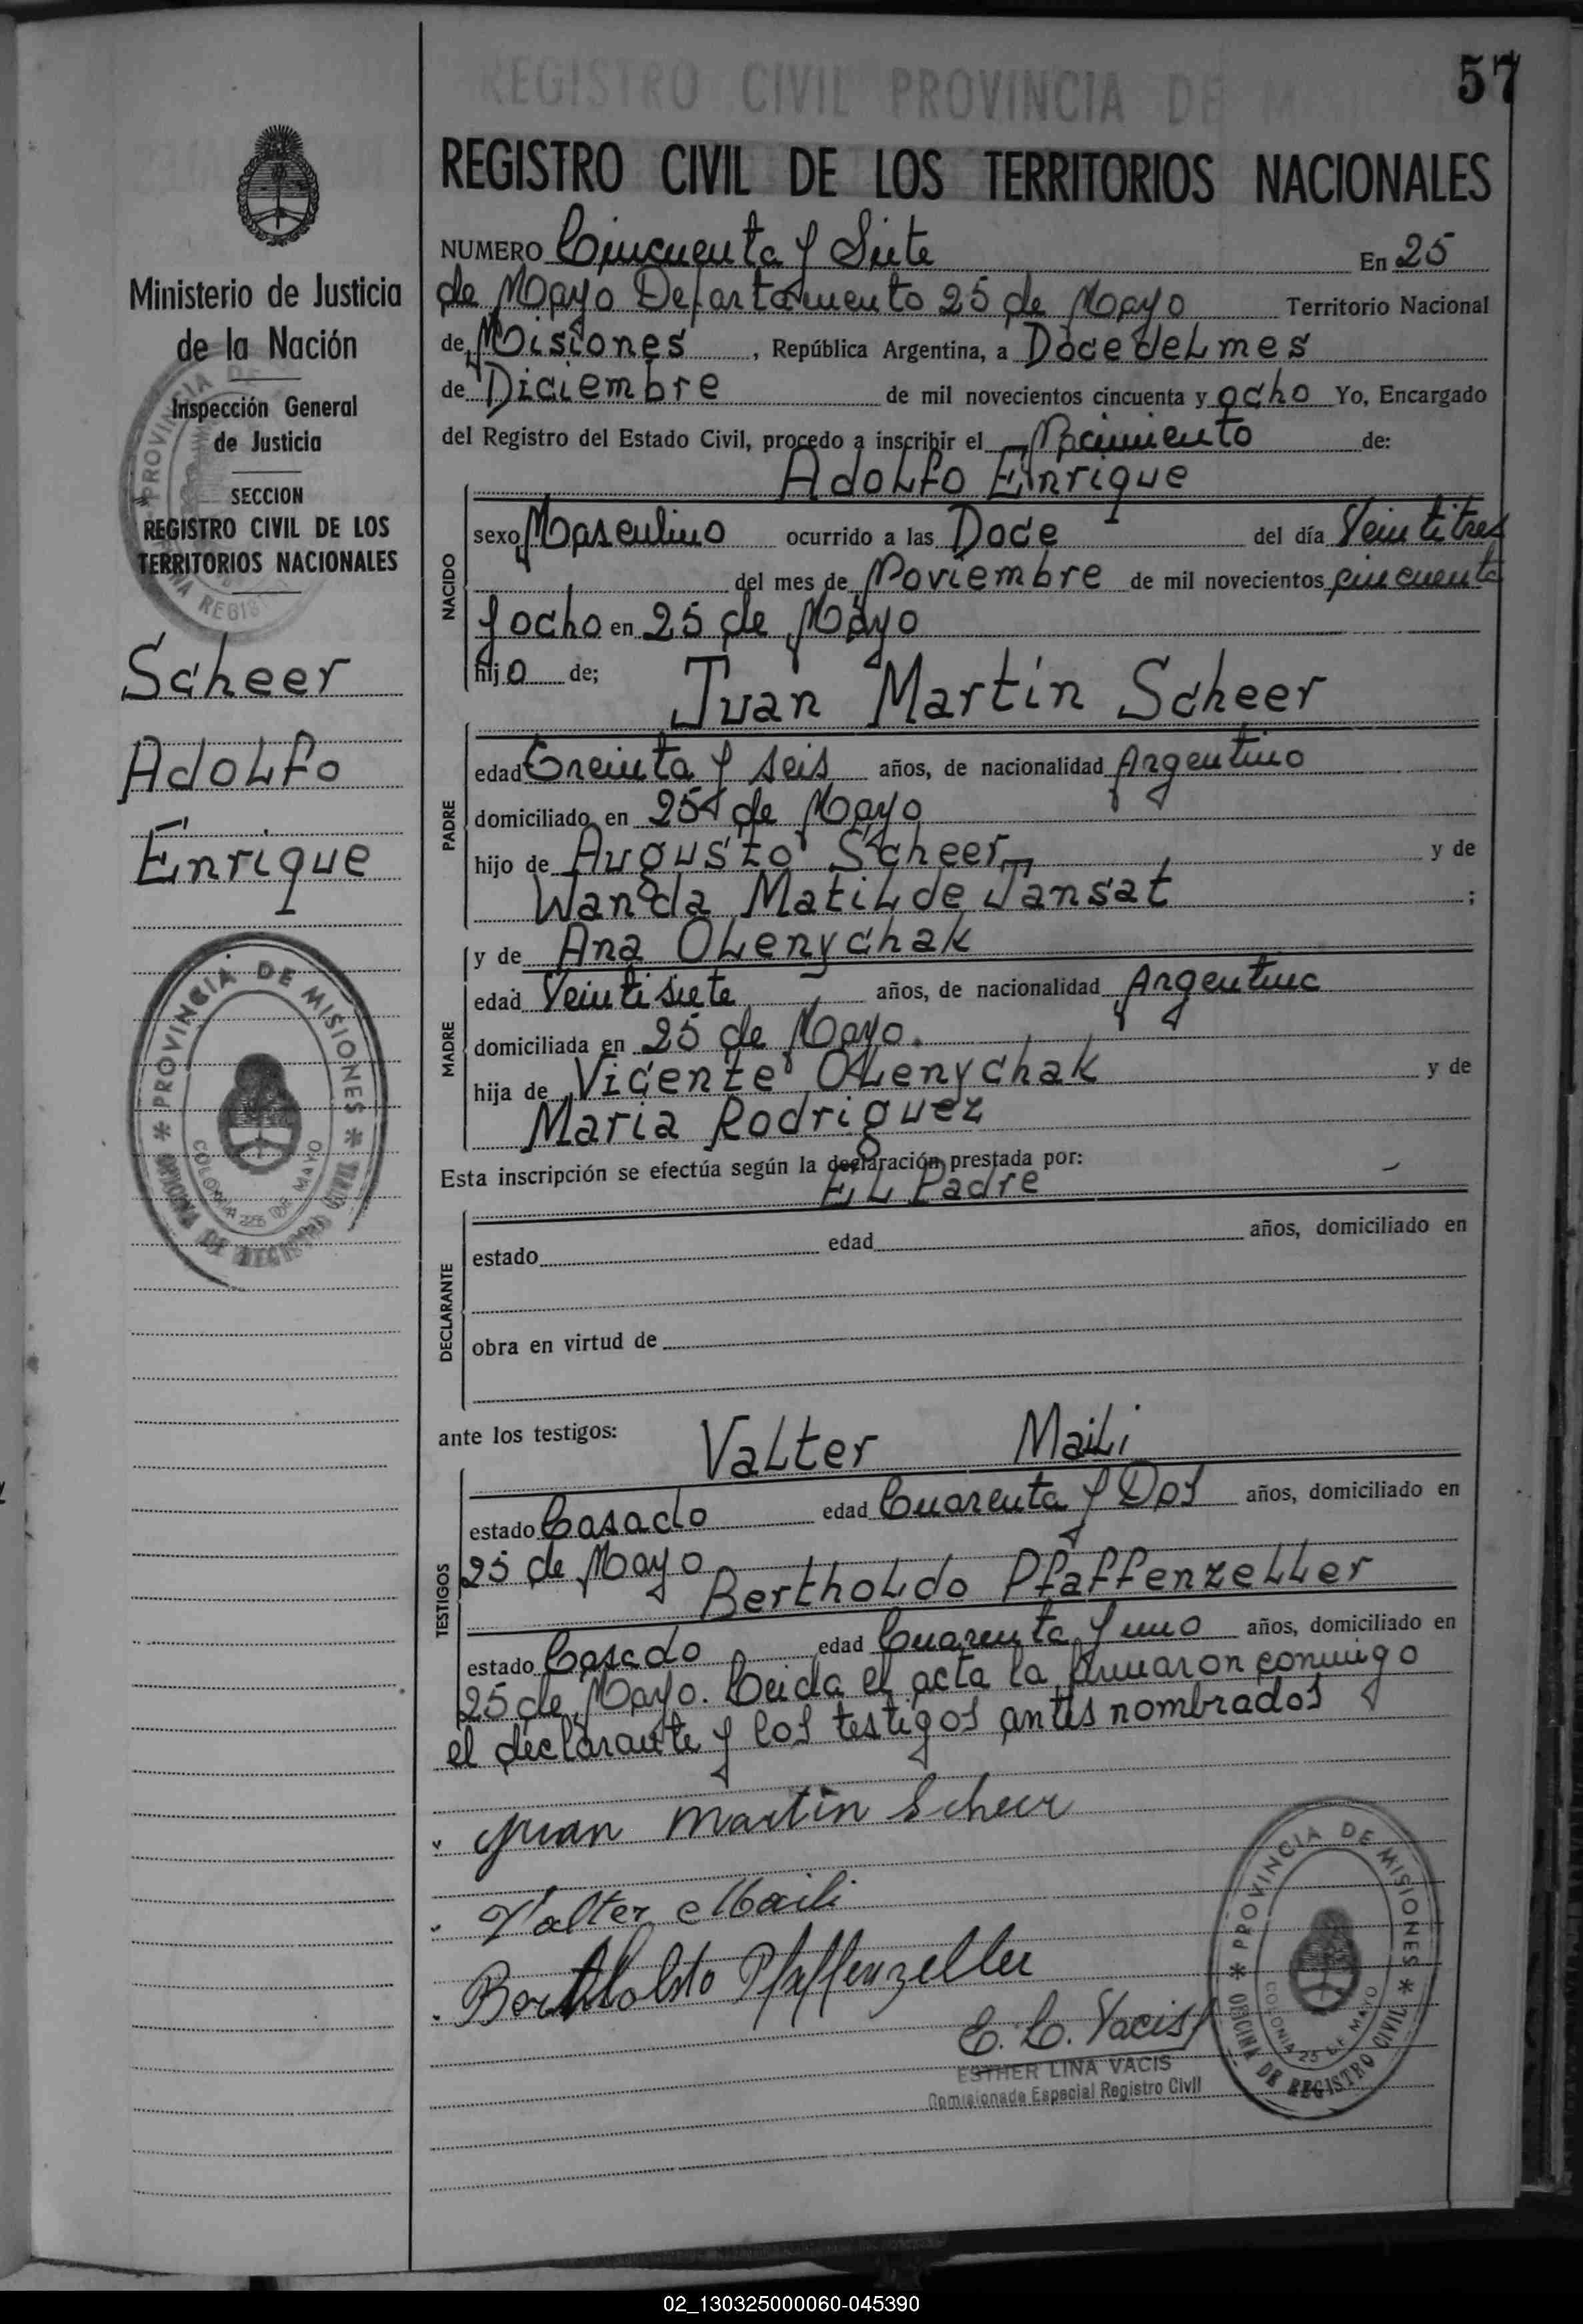 REGISTRO CIVIL PROVINCIA DE
57
REGISTRO CIVIL DE LOS TERRITORIOS NACIONALES
Ministerio de Justicia
de la Nación
Inspección General
de Justicia
SECCION
REGISTRO CIVIL DE LOS
TERRITORIOS NACIONALES
Scheer
Adolfo
Enrique
PROVINCIA DE MISIONES
COLONIA 25 DE MAYO
OFICINA DE REGISTRO CIVIL
NUMERO Cincuenta y Siete En 25
de Mayo Departamento 25 de Mayo Territorio Nacional
de Misiones, República Argentina, a Doce del mes
de Diciembre de mil novecientos cincuenta y ocho Yo, Encargado
del Registro del Estado Civil, procedo a inscribir el Nacimiento de:
Adolfo Enrique
NACIDO
sexo Masculino ocurrido a las Doce del día Veintitres
del mes de Noviembre de mil novecientos cincuenta
y ocho en 25 de Mayo
hijo de;
Juan Martin Scheer
PADRE
edad Treinta y seis años, de nacionalidad Argentino
domiciliado en 25 de Mayo
hijo de Augusto Scheer y de
Wanda Matilde Jansat ;
y de Ana Olenychak
MADRE
edad Veintisiete años, de nacionalidad Argentina
domiciliada en 25 de Mayo.
hija de Vicente Olenychak y de
Maria Rodriguez
Esta inscripción se efectúa según la declaración prestada por:
El Padre
DECLARANTE
estado edad años, domiciliado en
obra en virtud de
ante los testigos: Valter Maili
TESTIGOS
estado Casado edad Cuarenta y Dos años, domiciliado en
25 de Mayo
Bertholdo Pfaffenzeller
estado Casado edad Cuarenta y uno años, domiciliado en
25 de Mayo. Leida el acta la firmaron conmigo
el declarante y los testigos antes nombrados
Juan Martin Scheer
Valter Maili
Bertholdo Pfaffenzeller
E. L. Vacis
ESTHER LINA VACIS
Comisionada Especial Registro Civil
PROVINCIA DE MISIONES
COLONIA 25 DE MAYO
OFICINA DE REGISTRO CIVIL
02_130325000060-045390